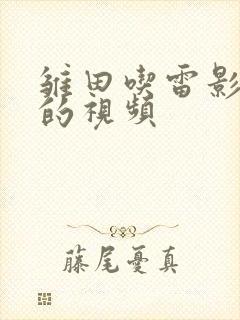 雏田喫雷影
的視頻
藤尾憂真